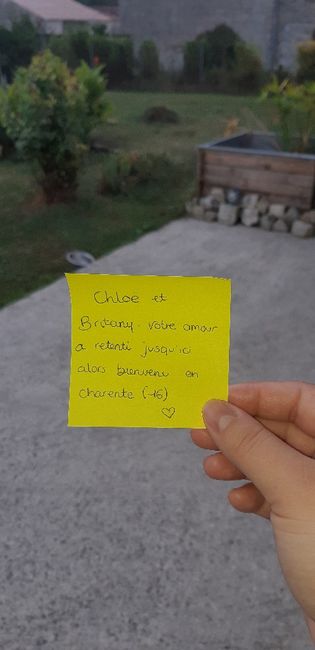 Chloe et
Britany. votre amour
a retenti jusqu'ici
alors bienvenu en
charente (16)
♡